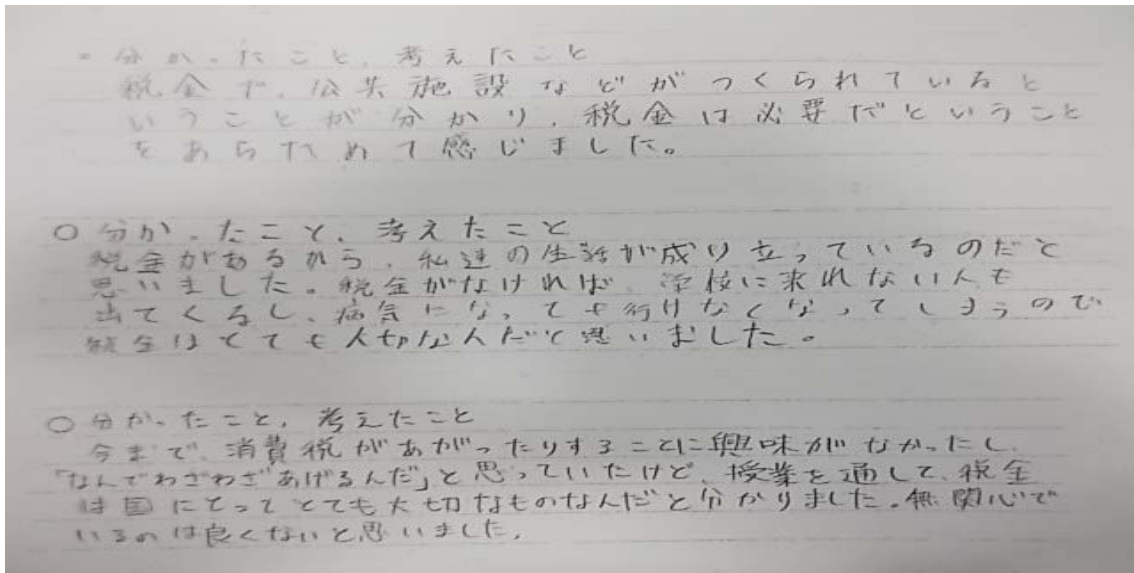 ○分かったこと、考えたこと
税金で、公共施設などがつくられていると
いうことが分かり、税金は必要だということ
をあらためて感じました。
○分かったこと、考えたこと
税金があるから、私達の生活が成り立っているのだと
思いました。税金がなければ、学校に来れない人も
出てくるし、病気になっても行けなくなってしまうので
税金はとても大切なんだと思いました。
○分かったこと、考えたこと
今まで、消費税があがったりすることに興味がなかったし、
「なんでわざわざあげるんだ」と思っていたけど、授業を通して、税金
は国にとってとても大切なものなんだと分かりました。無関心で
いるのは良くないと思いました。